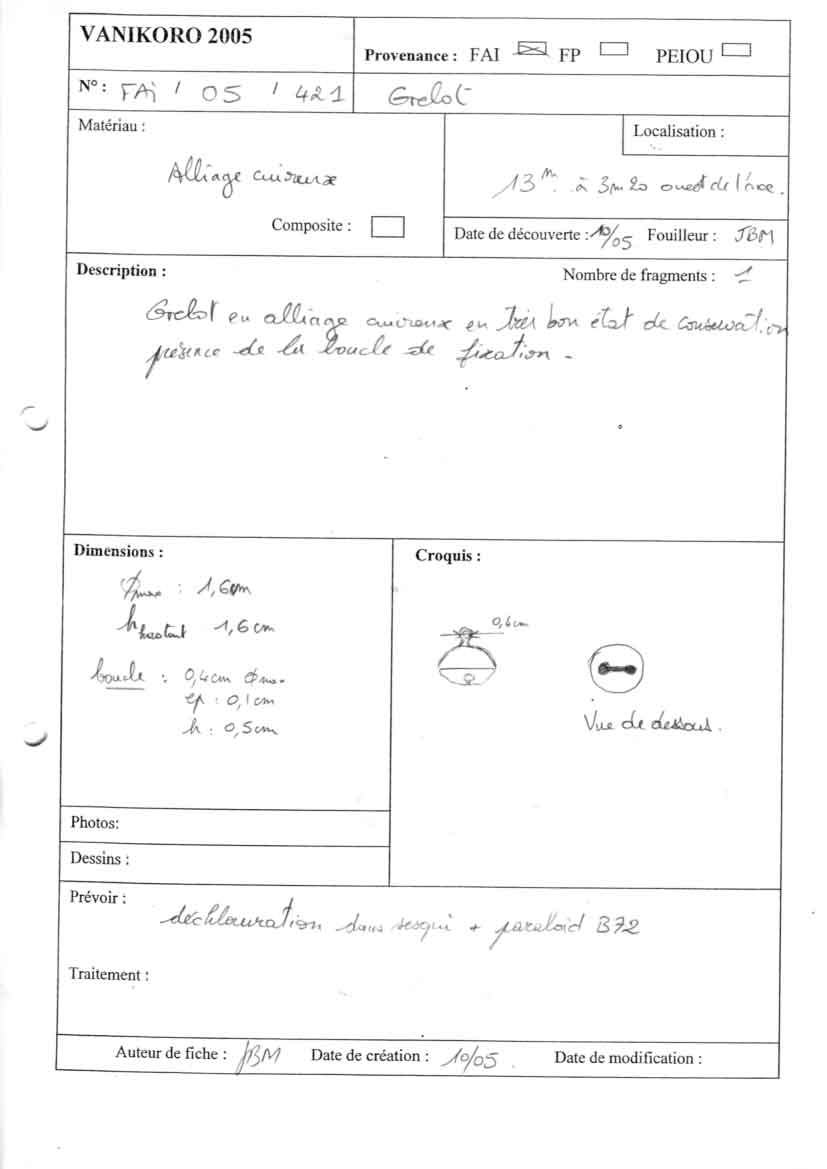 VANIKORO 2005
Provenance : FAI FP PEIOU
N° : FAi / 05 / 421 Grelot
Matériau :
Alliage cuivreux
Composite :
Localisation :
13m. à 3m20 ouest de l'axe.
Date de découverte : 10/05 Fouilleur : JBM
Description :
Nombre de fragments : 1
Grelot en alliage cuivreux en très bon état de conservation
présence de la boucle de fixation -
Dimensions :
φmax : 1,6cm
h 1,6cm
boucle : 0,4cm φmax
ep : 0,1cm
h : 0,5cm
Croquis :
0,6cm
Vue de dessous.
Photos:
Dessins :
Prévoir :
déchlouration dans sesqui + paraloid B72
Traitement :
Auteur de fiche : JBM Date de création : 10/05 . Date de modification :